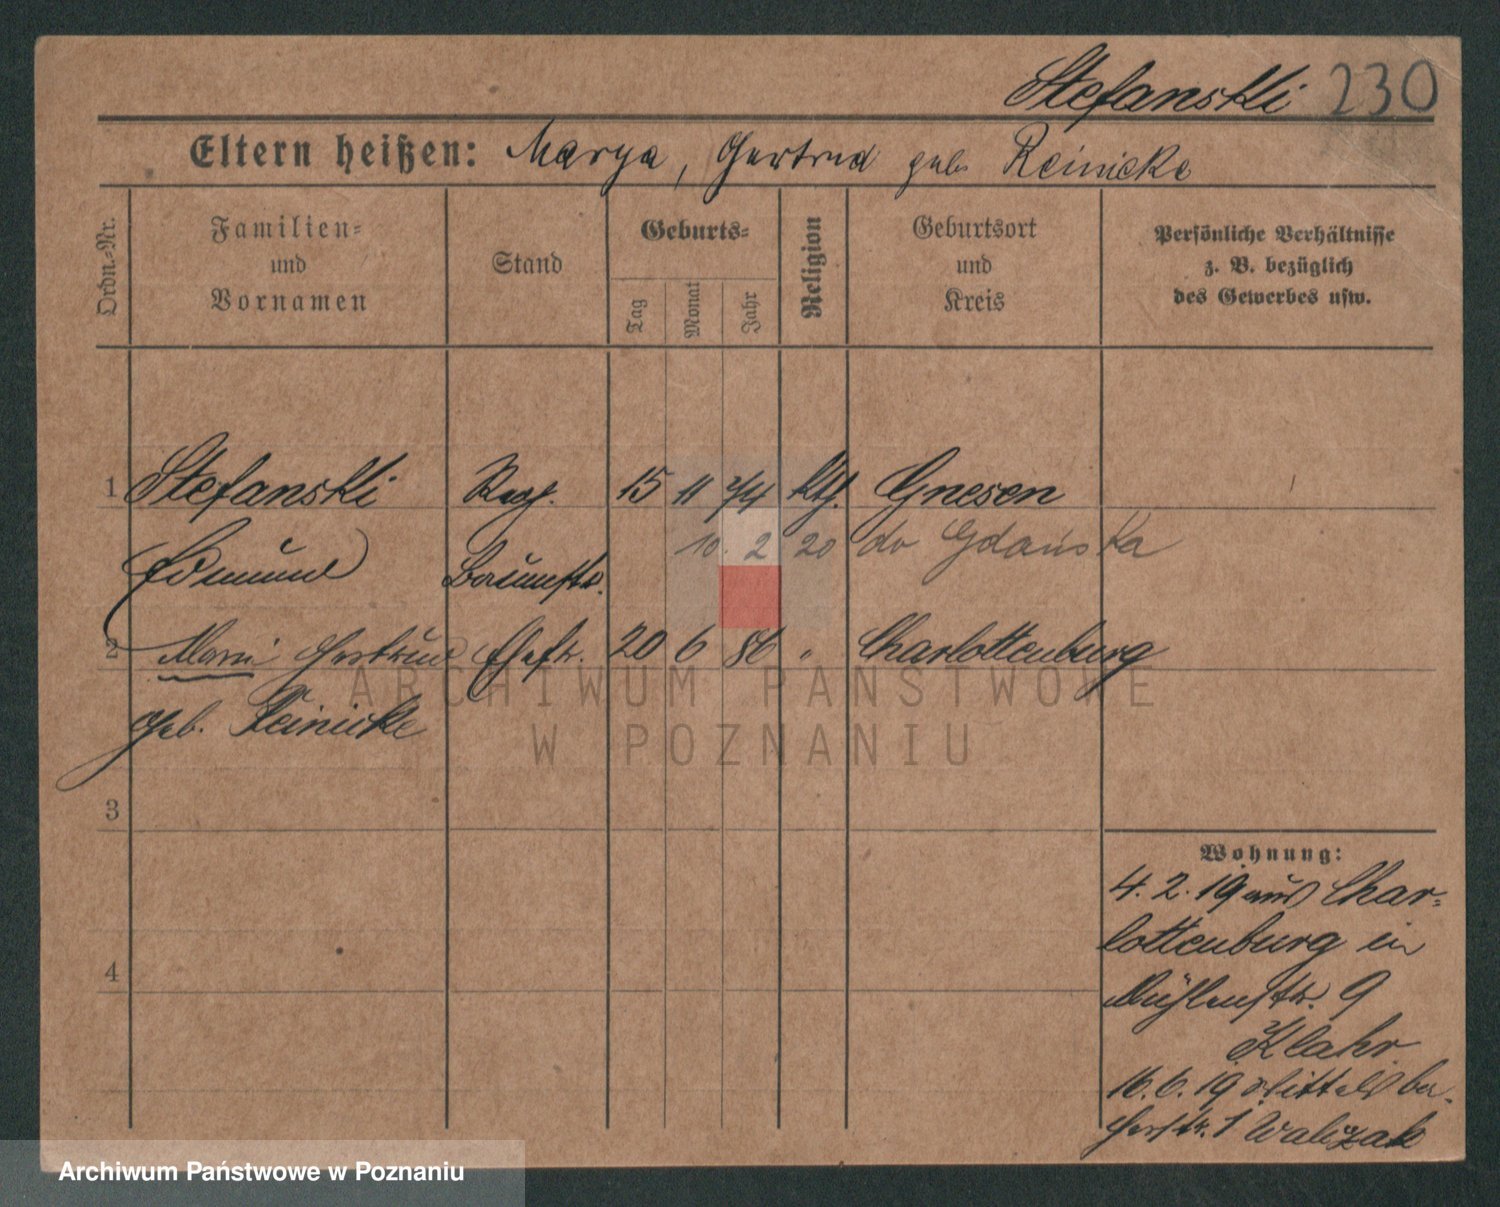 Stefanski 230
Eltern heißen: Marya, Gertrud geb. Reinicke
Ordn.-Nr.
Familien-
und
Vornamen
Stand
Geburts-
Tag
Monat
Jahr
Religion
Geburtsort
und
Kreis
Persönliche Verhältnisse
z. B. bezüglich
des Gewerbes usw.
1 Stefanski Reg. 15 11 74 kth. Gnesen
10. 2 20 do Gdańska
Edmund Baumstr.
2 Marie Gertrud Ehefr. 20 6 86 " Charlottenburg
geb. Reinicke
3
4
Wohnung:
4. 2. 19 aus Char-
lottenburg in
Mühlenstr. 9
Klahr
16. 6. 19 Wittels ba-
cherstr. 1 Walczak
ARCHIWUM PAŃSTWOWE
W POZNANIU
Archiwum Państwowe w Poznaniu